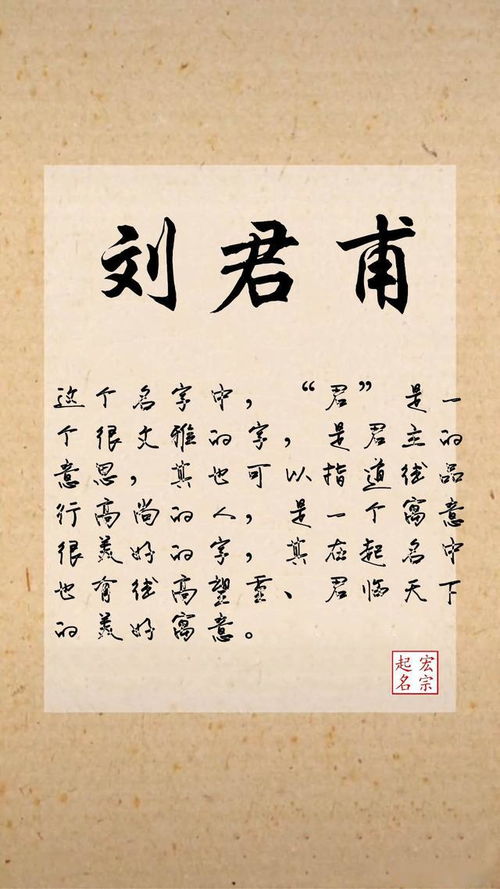 刘君甫
这个名字中，“君”是一
个很文雅的字，是君主的
意思，其也可以指道德品
行高尚的人，是一个寓意
很美好的字，其在起名中
也有德高望重、君临天下
的美好寓意。
宏宗
起名